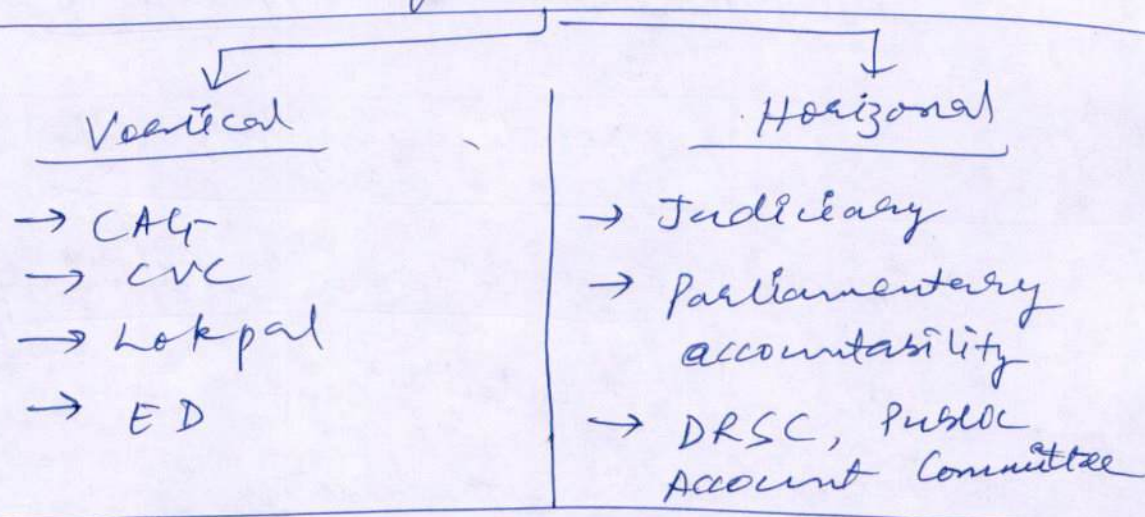 Vertical
→ CAG
→ CVC
→ Lokpal
→ ED
Horizonal
→ Judiciary
→ Parliamentary
accountability
→ DRSC, Public
Account Committee